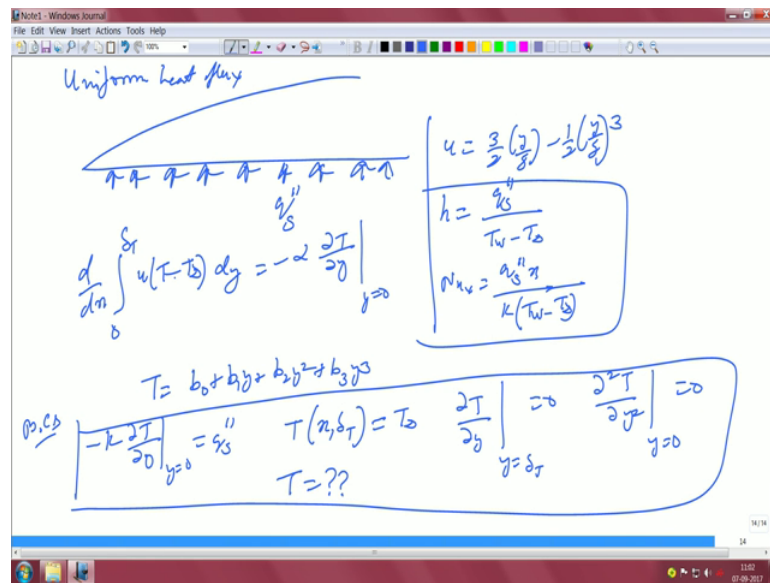 Note1 - Windows Journal
File Edit View Insert Actions Tools Help
100%
Uniform heat flux
q''_s
u = 3/2 (y/δ) - 1/2 (y/δ)^3
h = q''_s / (T_w - T_∞)
Nu_x = q''_s x / (k (T_w - T_∞))
d/dx ∫_0^{δ_T} u(T - T_∞) dy = -α ∂T/∂y |_{y=0}
T = b_0 + b_1 y + b_2 y^2 + b_3 y^3
B.Cs
-k ∂T/∂0 |_{y=0} = q''_s T(x, δ_T) = T_∞ ∂T/∂y |_{y=δ_T} = 0 ∂^2T/∂y^2 |_{y=0} = 0
T = ??
14/14
14
11:02
07-09-2017